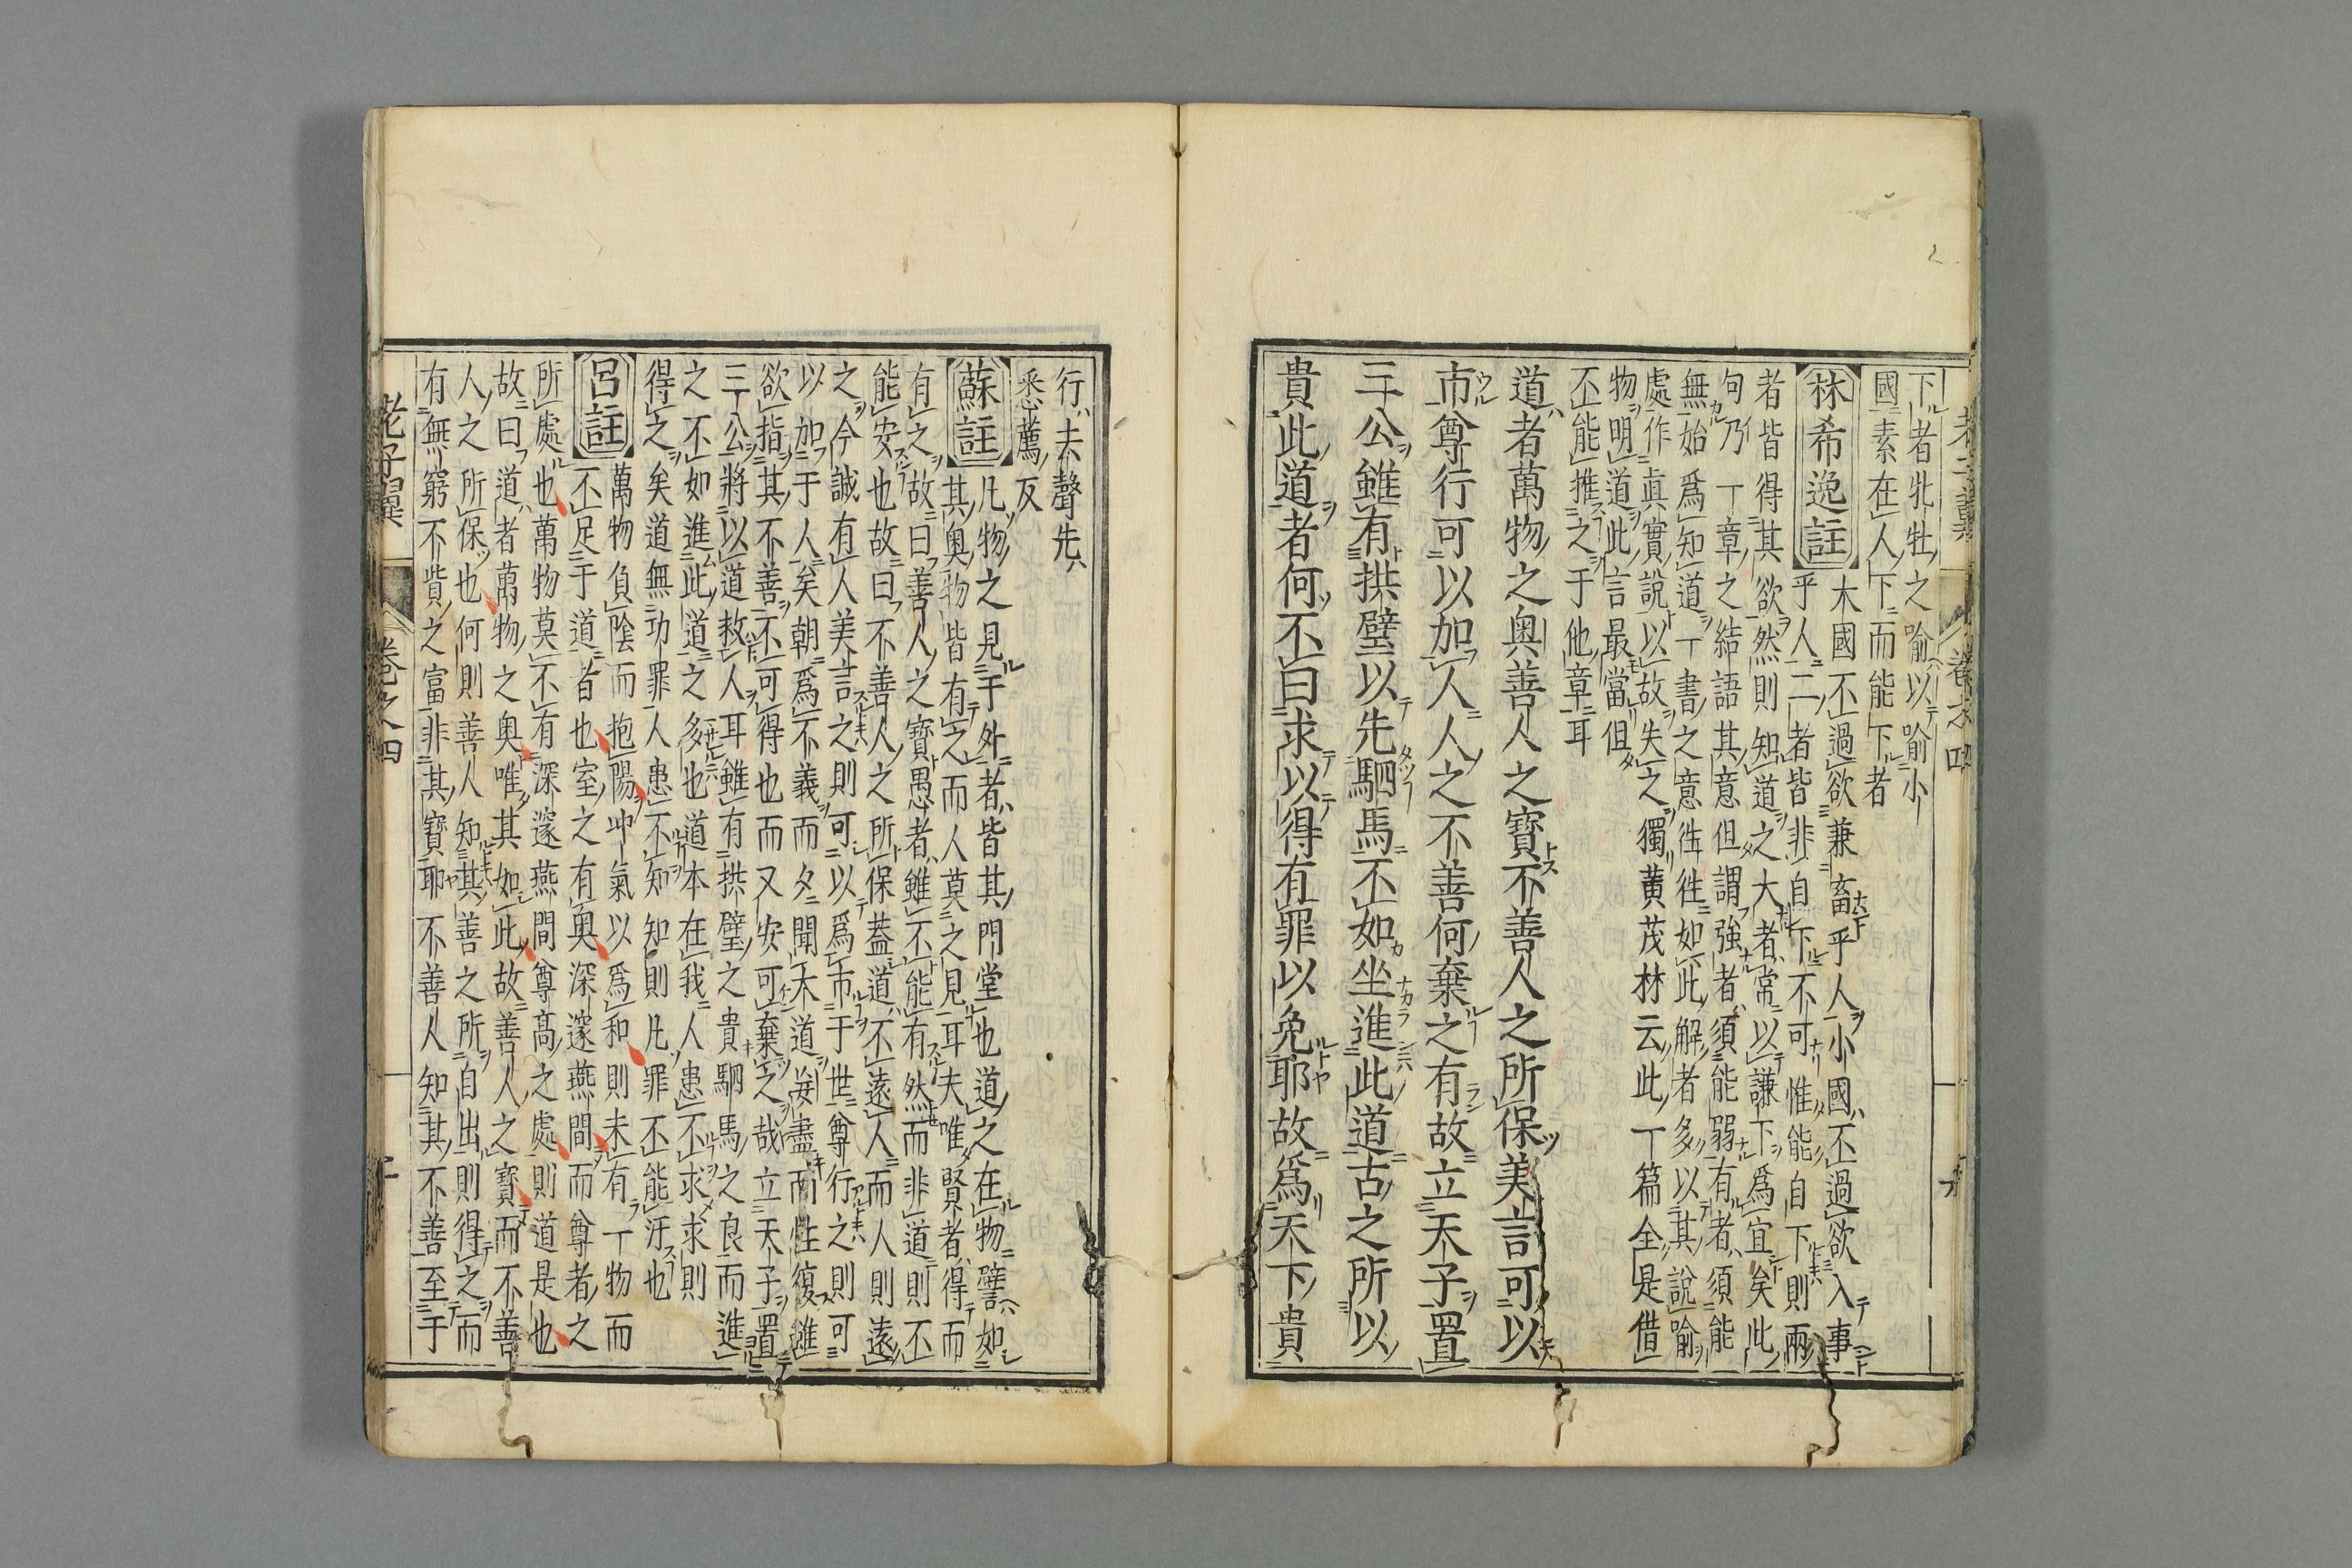 下者牝牡之喻以喻小
國素在人下而能下者
林希逸註
大國不過欲兼畜乎人小國不過欲入事
乎人二者皆非自下不可惟能自下則兩
者皆得其欲然則知道之大者常以謙下爲宜矣此
句乃一章之結語其意但謂強者須能弱有者須能
無始爲知道一書之意徃徃如此解者多以其說喻
處作眞實說以故失之獨黄茂材云此一篇全是借
物明道此言最當但
不能推之于他章耳
道者萬物之奥善人之寶不善人之所保美言可以
市尊行可以加人人之不善何棄之有故立天子置
三公雖有拱璧以先駟馬不如坐進此道古之所以
貴此道者何不曰求以得有罪以免耶故爲天下貴
行去聲先
悉薦反
蘇註
凡物之見于外者皆其門堂也道之在物譬如
其奥物皆有之而人莫之見耳夫唯賢者得而
有之故曰善人之寶愚者雖不能有然而非道則不
能安也故曰不善人之所保蓋道不遠人而人則遠
之今誠有人美言之則可以爲市于世尊行之則可
以加于人矣朝爲不義而夕聞大道妄盡而性復雖
欲指其不善不可得也而又安可棄之哉立天子置
三公將以道救人耳雖有拱璧之貴駟馬之良而進
之不如進此道之多也道本在我人患不求求則
得之矣道無功罪人患不知知則凡罪不能汙也
呂註
萬物負陰而抱陽冲氣以爲和則未有一物而
不足于道者也室之有奥深邃燕間而尊者之
所處也萬物莫不有深邃燕間尊髙之處則道是也
故曰道者萬物之奥唯其如此故善人之寶而不善
人之所保也何則善人知其善之所自出則得之而
有無窮不貲之富非其寶耶不善人知其不善至于
老子翼
卷之四